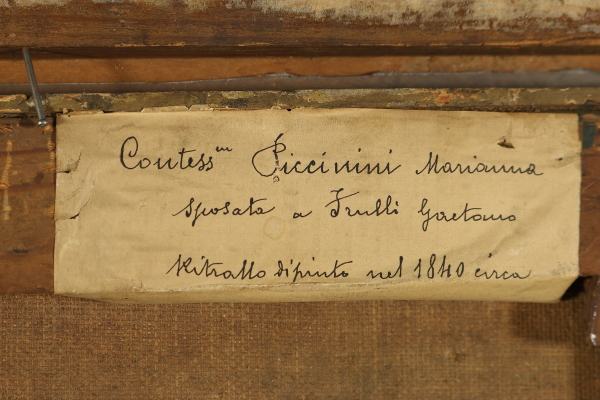 Contess.na Piccinini Marianna
sposata a Frulli Gaetano
Ritratto dipinto nel 1840 circa